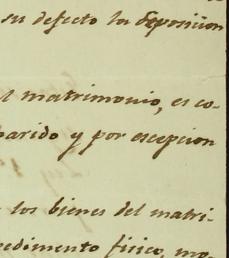 su defecto la deposicion
el matrimonio, es co-
parido y por escepcion
los bienes del matri-
pedimento fisico, mo-